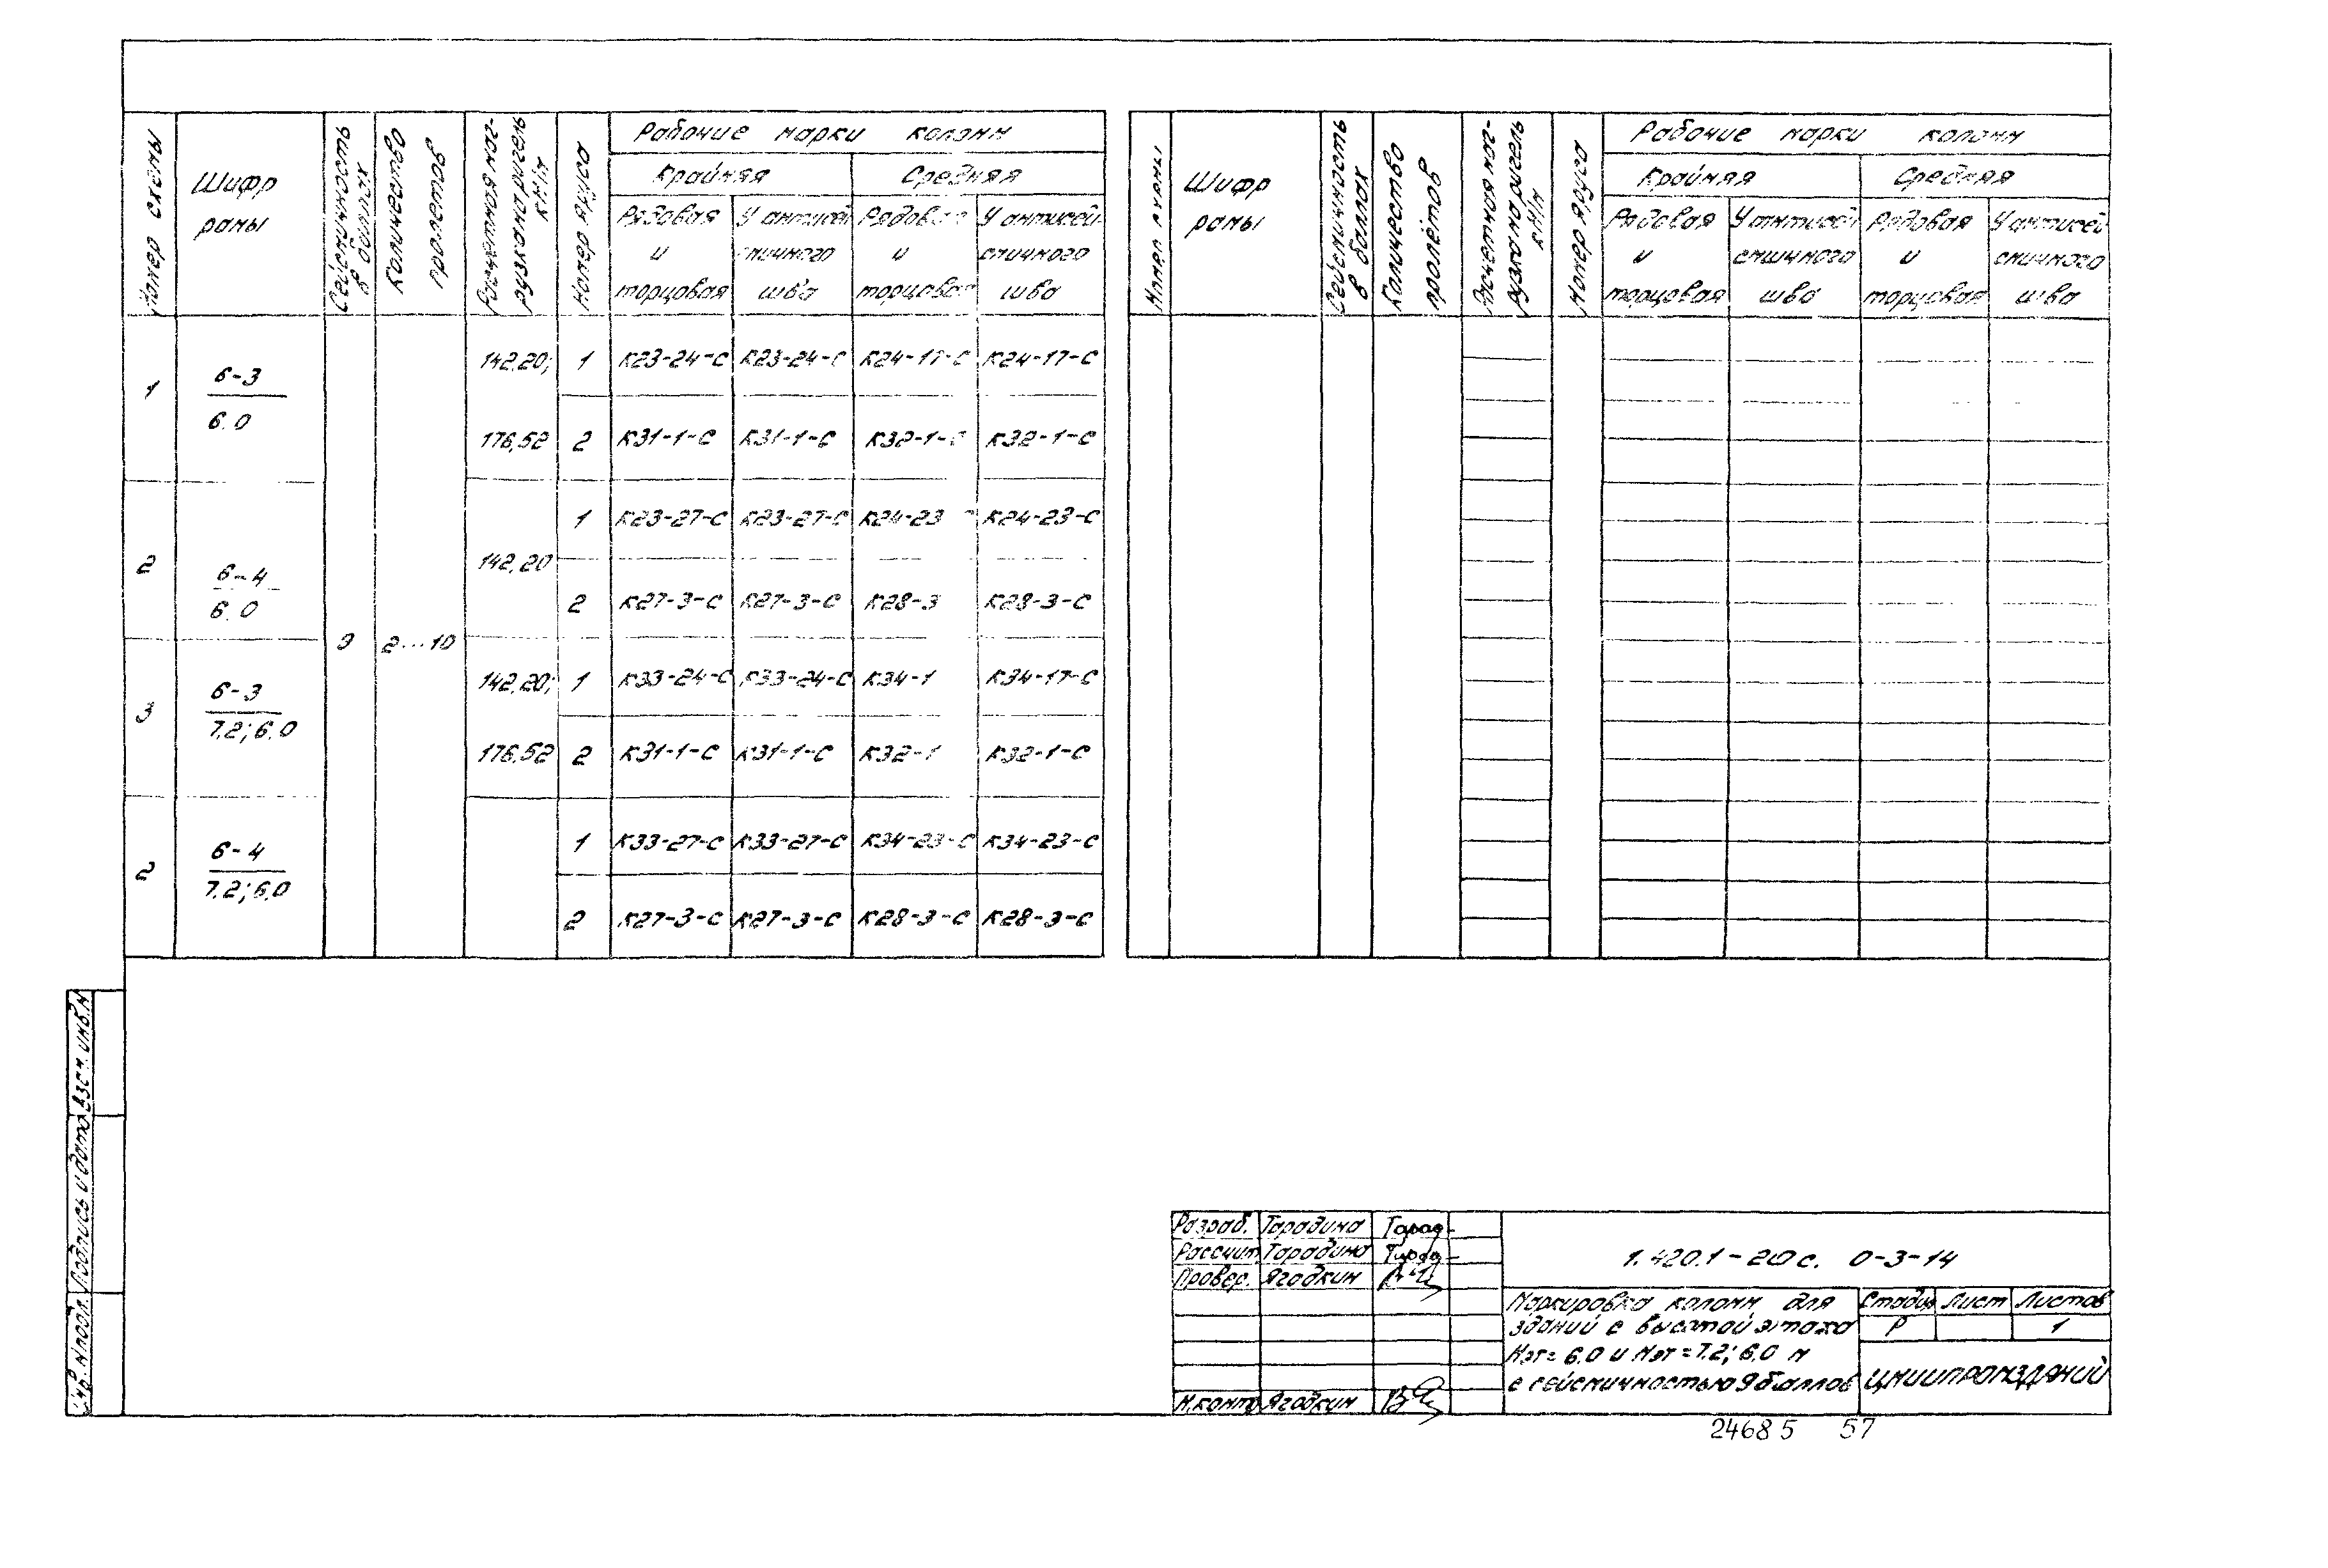 Номер схемы
Шифр рамы
Сейсмичность в баллах
Количество пролетов
Расчетная наг-
рузка на ригель
кН/м
Номер яруса
Рабочие марки колонн
Крайняя Средняя
Рядовая У антисей Рядовая У антисей-
и смичного и смичного
торцовая шва торцовая шва
1 6-3 142.20; 1 К23-24-С К23-24-С К24-17-С К24-17-С
6.0
176,52 2 К31-1-С К31-1-С К32-1-С К32-1-С
1 К23-27-С К23-27-С К24-23 С К24-23-С
2 6-4 142.20
6.0 2 К27-3-С К27-3-С К28-3 К28-3-С
9 2...10
3 6-3 142.20; 1 К33-24-С К33-24-С К34-1 К34-17-С
7.2; 6.0
176.52 2 К31-1-С К31-1-С К32-1 К32-1-С
1 К33-27-С К33-27-С К34-23-С К34-23-С
2 6-4
7.2; 6.0
2 К27-3-С К27-3-С К28-3-С К28-3-С
Номер схемы
Шифр рамы
Сейсмичность в баллах
Количество пролётов
Расчетная наг-
рузка на ригель
кН/м
Номер яруса
Рабочие марки колонн
Крайняя Средняя
Рядовая У антисей Рядовая У антисей
и смичного и смичного
торцовая шва торцовая шва
Инв. № подл. Подпись и дата Взам. инв. №
Разраб. Тарадина Тарад-
Рассчит. Тарадина Тарад-
Провер. Ягодкин
Н.контр Ягодкин
1.420.1-20с. 0-3-14
Маркировка колонн для
зданий с высотой этажа
Нэт= 6.0 и Нэт=7.2; 6.0 м
с сейсмичностью 9 баллов
Стадия Лист Листов
Р 1
ЦНИИПРОМЗДАНИЙ
24685 57